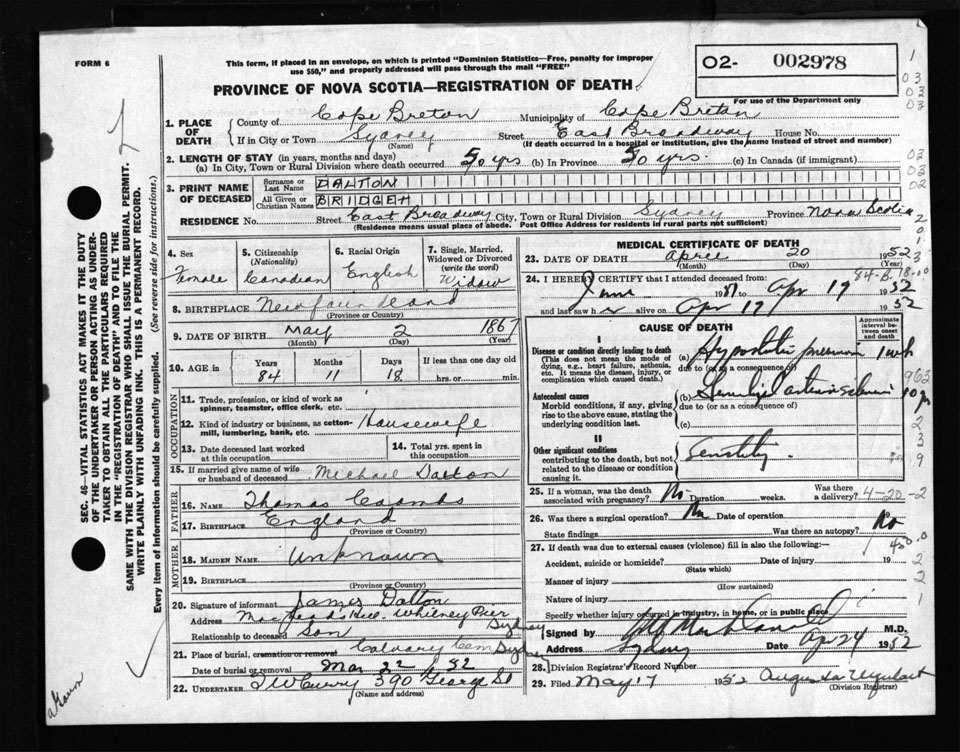 FORM 6
This form, if placed in an envelope, on which is printed "Dominion Statistics—Free, penalty for improper
use $50," and properly addressed will pass through the mail "FREE"
O2- 002978
For use of the Department only
PROVINCE OF NOVA SCOTIA—REGISTRATION OF DEATH
1. PLACE OF DEATH
County of Cape Breton Municipality of Cape Breton
If in City or Town Sydney (Name) Street East Broadway House No.
(If death occurred in a hospital or institution, give the name instead of street and number)
2. LENGTH OF STAY (in years, months and days)
(a) In City, Town or Rural Division where death occurred 50 yrs (b) In Province 50 yrs. (c) In Canada (if immigrant)
3. PRINT NAME OF DECEASED
Surname or Last Name DALTON
All Given or Christian Names BRIDGEH
RESIDENCE No. Street East Broadway City, Town or Rural Division Sydney Province Nova Scotia
(Residence means usual place of abode. Post Office Address for residents in rural parts not sufficient)
4. Sex Female
5. Citizenship (Nationality) Canadian
6. Racial Origin English
7. Single, Married, Widowed or Divorced (write the word) Widow
8. BIRTHPLACE Newfoundland
(Province or Country)
9. DATE OF BIRTH May 2 1867
(Month) (Day) (Year)
10. AGE in Years 84 Months 11 Days 18 If less than one day old hrs. or min.
OCCUPATION
11. Trade, profession, or kind of work as spinner, teamster, office clerk, etc.
12. Kind of industry or business, as cotton-mill, lumbering, bank, etc. Housewife
13. Date deceased last worked at this occupation
14. Total yrs. spent in this occupation
15. If married give name of wife or husband of deceased Michael Dalton
FATHER
16. Name Thomas
17. Birthplace England
(Province or Country)
MOTHER
18. Maiden Name Unknown
19. Birthplace
(Province or Country)
20. Signature of informant James Dalton
Address Whitney Pier Sydney
Relationship to deceased Son
21. Place of burial, cremation or removal Calvary Cem Sydney
Date of burial or removal 22 / 52
22. UNDERTAKER 390 George St
(Name and address)
MEDICAL CERTIFICATE OF DEATH
23. DATE OF DEATH April 20 1952
(Month) (Day) (Year)
84-11-18-00
24. I HEREBY CERTIFY that I attended deceased from:
June 1951 to Apr 19 1952
and last saw h er alive on Apr 19 1952
CAUSE OF DEATH
Approximate interval between onset and death
I
Disease or condition directly leading to death
(This does not mean the mode of dying, e.g., heart failure, asthenia, etc. It means the disease, injury, or complication which caused death.)
(a) Hypostatic pneumonia 1 wk
due to (or as a consequence of)
Antecedent causes
Morbid conditions, if any, giving rise to the above cause, stating the underlying condition last.
(b) 10 yr
due to (or as a consequence of)
(c)
II
Other significant conditions
contributing to the death, but not related to the disease or condition causing it.
Senility
25. If a woman, was the death associated with pregnancy? No Duration weeks. Was there a delivery? 4-20-2
26. Was there a surgical operation? No Date of operation
State findings Was there an autopsy? No
27. If death was due to external causes (violence) fill in also the following:—
Accident, suicide or homicide? Date of injury 19
(State which)
Manner of injury
(How sustained)
Nature of injury
Specify whether injury occurred in industry, in home, or in public place
Signed by M.D.
Address Sydney Date Apr 24 1952
28. Division Registrar's Record Number
29. Filed May 17 1952 Augusta Urquhart
(Division Registrar)
SEC. 46—VITAL STATISTICS ACT MAKES IT THE DUTY
OF THE UNDERTAKER OR PERSON ACTING AS UNDER-
TAKER TO OBTAIN ALL THE PARTICULARS REQUIRED
IN THE "REGISTRATION OF DEATH" AND TO FILE THE
SAME WITH THE DIVISION REGISTRAR WHO SHALL ISSUE THE BURIAL PERMIT.
WRITE PLAINLY WITH UNFADING INK. THIS IS A PERMANENT RECORD.
Every item of information should be carefully supplied. (See reverse side for instructions.)